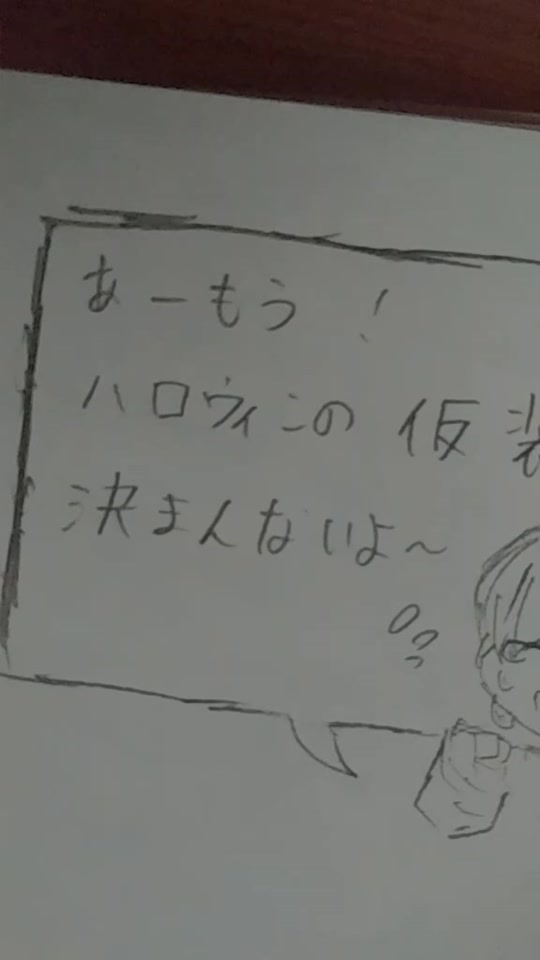 あーもう!
ハロウィンの仮装
決まんないよ～